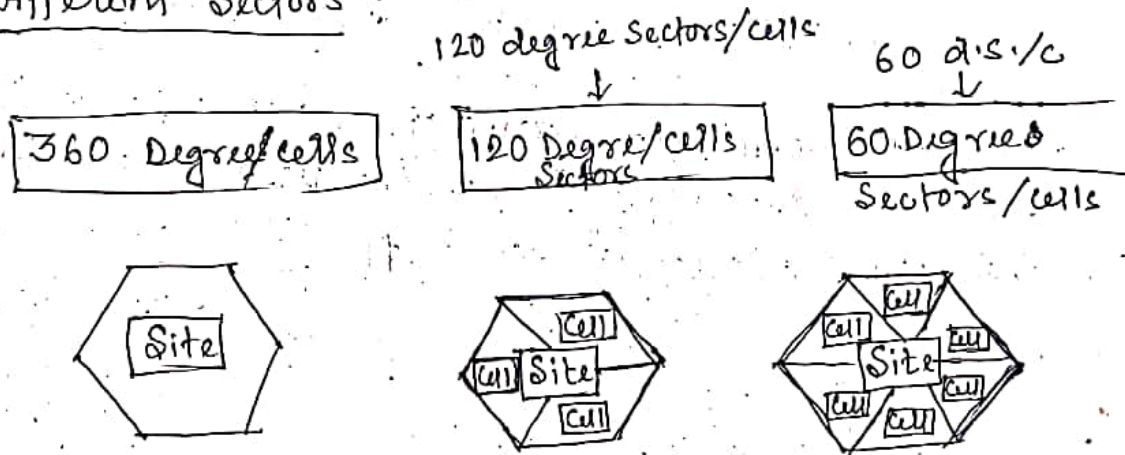 Different Sectors
120 degree Sectors/cells
60 d.s./c
360 Degree/cells
120 Degre/cells
Sectors
60 Degrees
Sectors/cells
Site
Cell
Cell
Site
Cell
Cell
Cell
Cell
Site
Cell
Cell
Cell